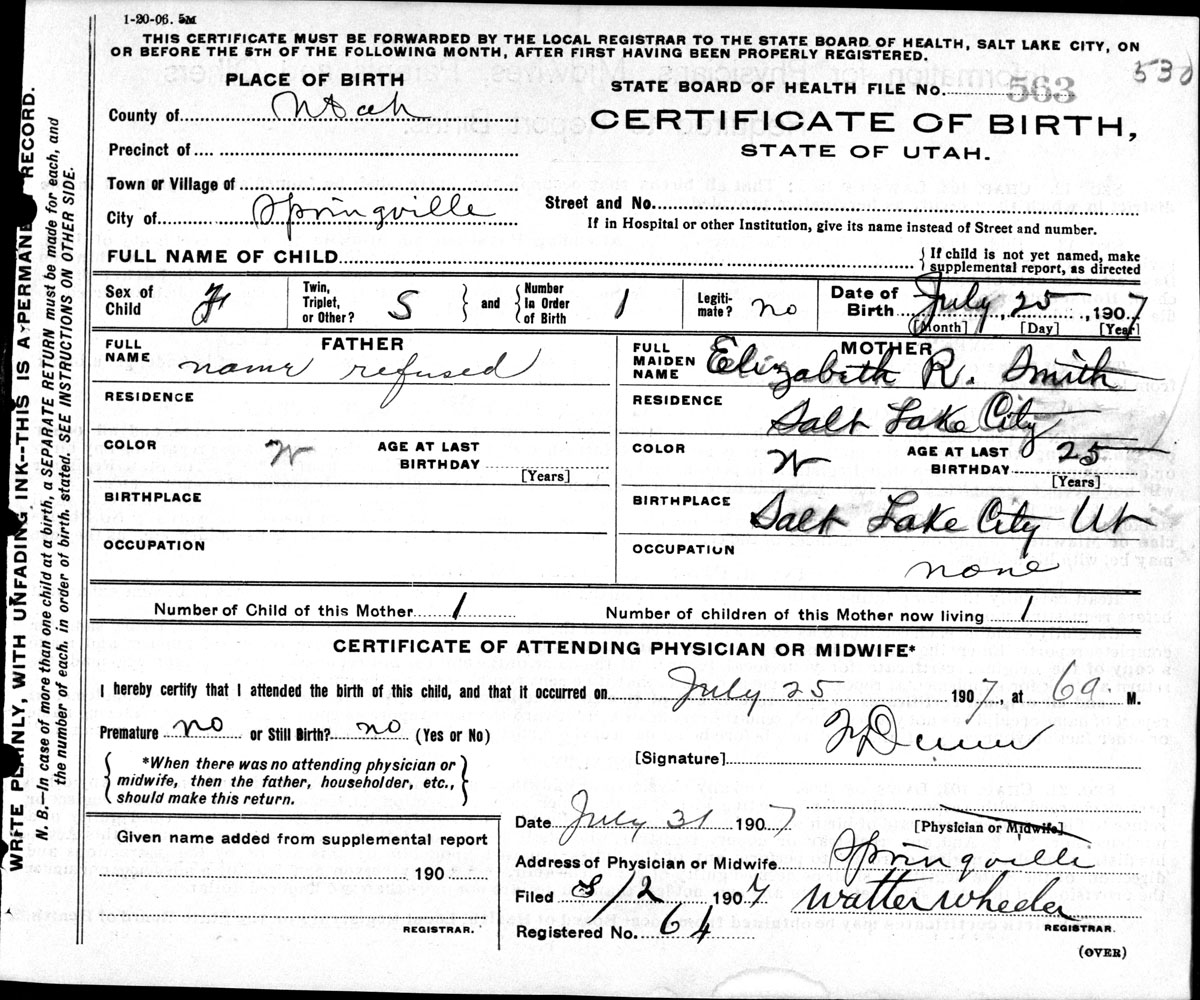 1-20-06. 5M
THIS CERTIFICATE MUST BE FORWARDED BY THE LOCAL REGISTRAR TO THE STATE BOARD OF HEALTH, SALT LAKE CITY, ON
OR BEFORE THE 5TH OF THE FOLLOWING MONTH, AFTER FIRST HAVING BEEN PROPERLY REGISTERED.
530
PLACE OF BIRTH
STATE BOARD OF HEALTH FILE No. 563
County of Utah
CERTIFICATE OF BIRTH,
Precinct of
STATE OF UTAH.
Town or Village of
City of Springville
Street and No.
If in Hospital or other Institution, give its name instead of Street and number.
FULL NAME OF CHILD
{If child is not yet named, make
supplemental report, as directed
Sex of Child F
Twin, Triplet, or Other? S } and { Number In Order of Birth 1
Legiti-mate? no
Date of Birth July 25, 1907
[Month] [Day] [Year]
FATHER
FULL NAME name refused
RESIDENCE
COLOR W AGE AT LAST BIRTHDAY
[Years]
BIRTHPLACE
OCCUPATION
MOTHER
FULL MAIDEN NAME Elizabeth R. Smith
RESIDENCE Salt Lake City
COLOR W AGE AT LAST BIRTHDAY 25
[Years]
BIRTHPLACE Salt Lake City Ut
OCCUPATION none
Number of Child of this Mother 1 Number of children of this Mother now living 1
CERTIFICATE OF ATTENDING PHYSICIAN OR MIDWIFE*
I hereby certify that I attended the birth of this child, and that it occurred on July 25 1907, at 6a M.
Premature no or Still Birth? no (Yes or No)
[Signature]
*When there was no attending physician or
midwife, then the father, householder, etc.,
should make this return.
Date July 31 1907
[Physician or Midwife]
Address of Physician or Midwife Springville
Filed 8/2 1907 Walter Wheeler
REGISTRAR.
Registered No. 64
(OVER)
Given name added from supplemental report
190
REGISTRAR.
WRITE PLAINLY, WITH UNFADING INK--THIS IS A PERMANE RECORD.
N. B.--In case of more than one child at a birth, a SEPARATE RETURN must be made for each, and
the number of each, in order of birth, stated. SEE INSTRUCTIONS ON OTHER SIDE.